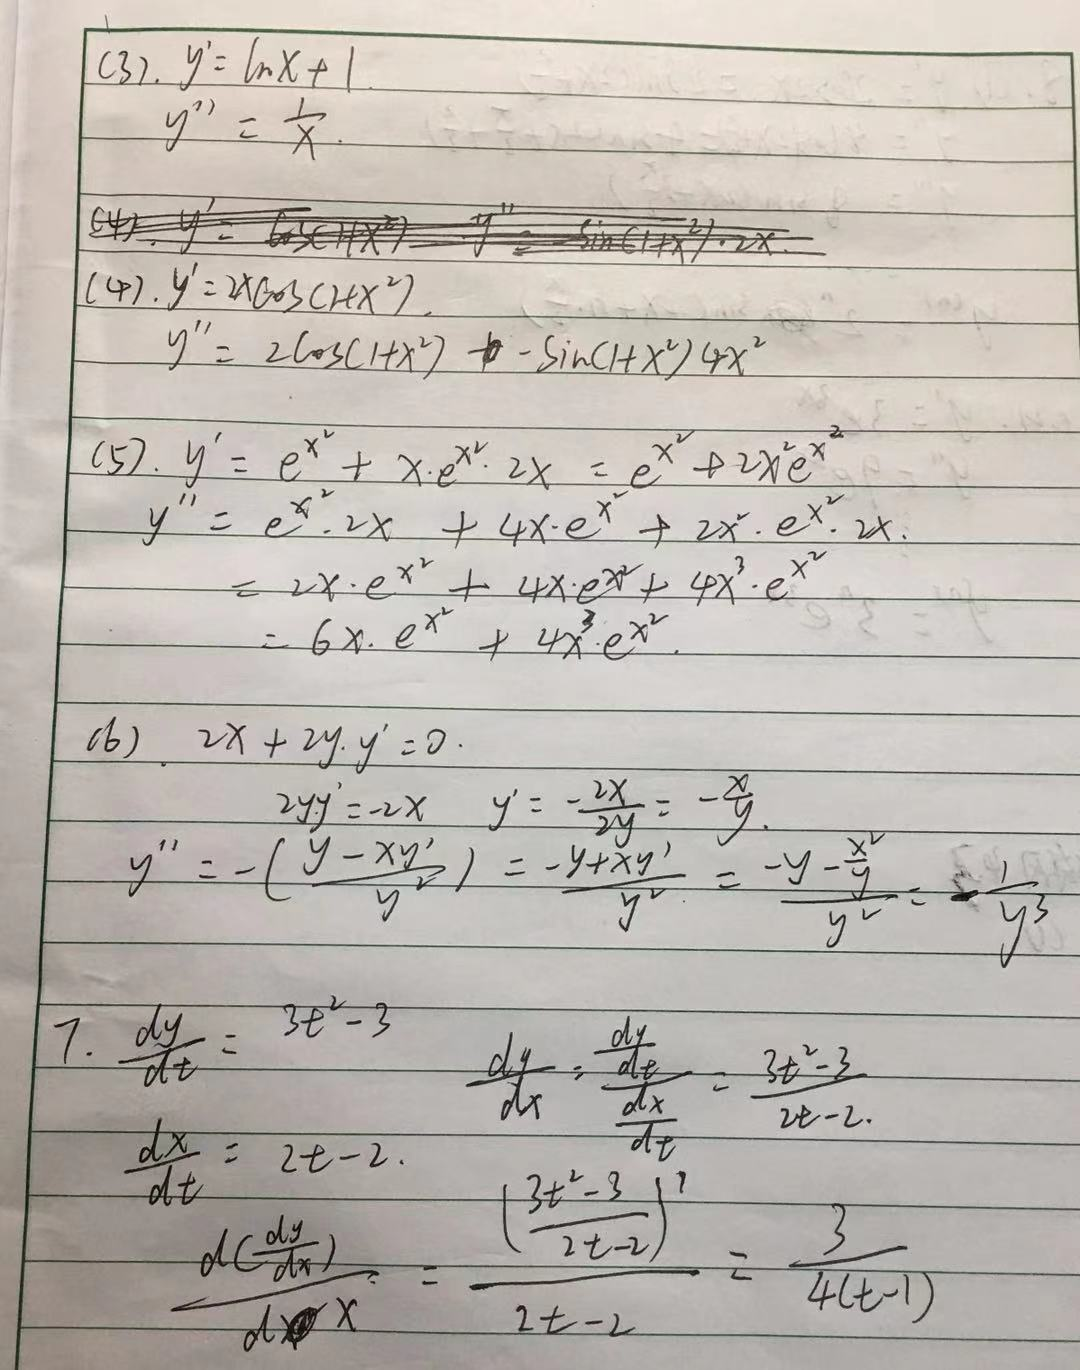 (3). y' = lnx+1.
y'' = 1/x.
(4). y' = cos(1+x²) y'' = -sin(1+x²)·2x.
(4). y' = 2xcos(1+x²).
y'' = 2cos(1+x²) - sin(1+x²)4x²
(5). y' = e^x² + x·e^x²·2x = e^x² + 2x²e^x²
y'' = e^x²·2x + 4x·e^x² + 2x²·e^x²·2x.
= 2x·e^x² + 4x·e^x² + 4x³·e^x²
= 6x·e^x² + 4x³·e^x².
(6) 2x+2y·y'=0.
2yy'=-2x y' = -2x/2y = -x/y.
y'' = -((y-xy')/y²) = (-y+xy')/y² = (-y-x²/y)/y² = -1/y³
7. dy/dt = 3t²-3 dy/dx = (dy/dt)/(dx/dt) = (3t²-3)/(2t-2).
dx/dt = 2t-2.
d(dy/dx)/dx = ((3t²-3)/(2t-2))'/(2t-2) = 3/(4(t-1))